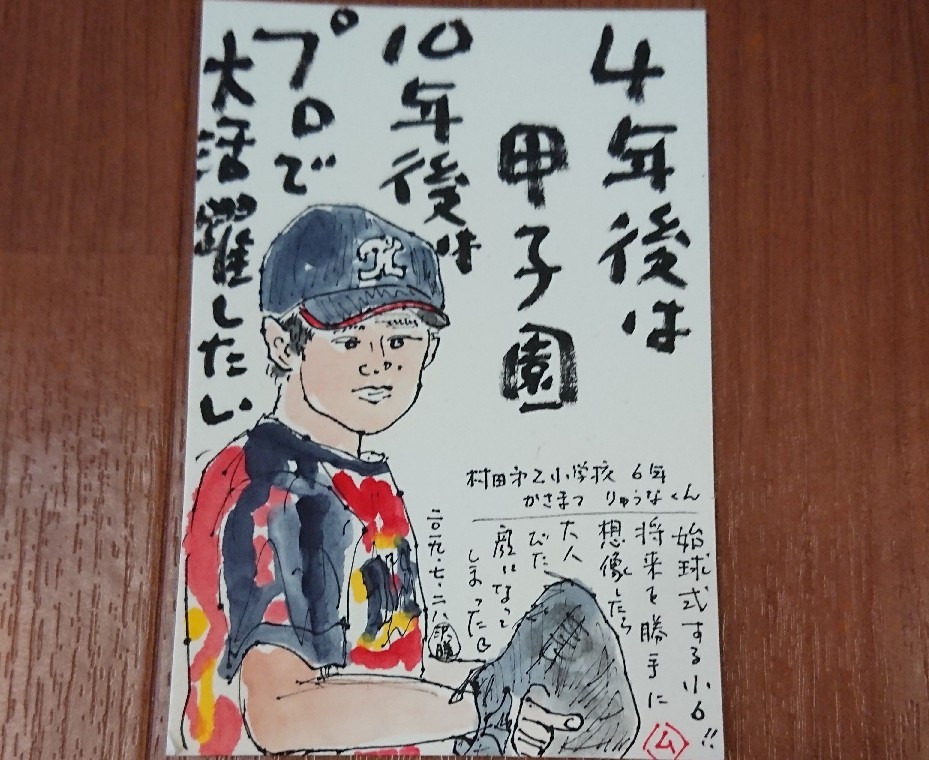 4年後は
甲子園
10年後は
プロで
大活躍したい
村田第乙小学校 6年
かさまつ りゅうなくん
始球式する小6!!
将来を勝手に
想像したら
大人
びた
顔になって
しまった
二〇一九・七・二八
ム